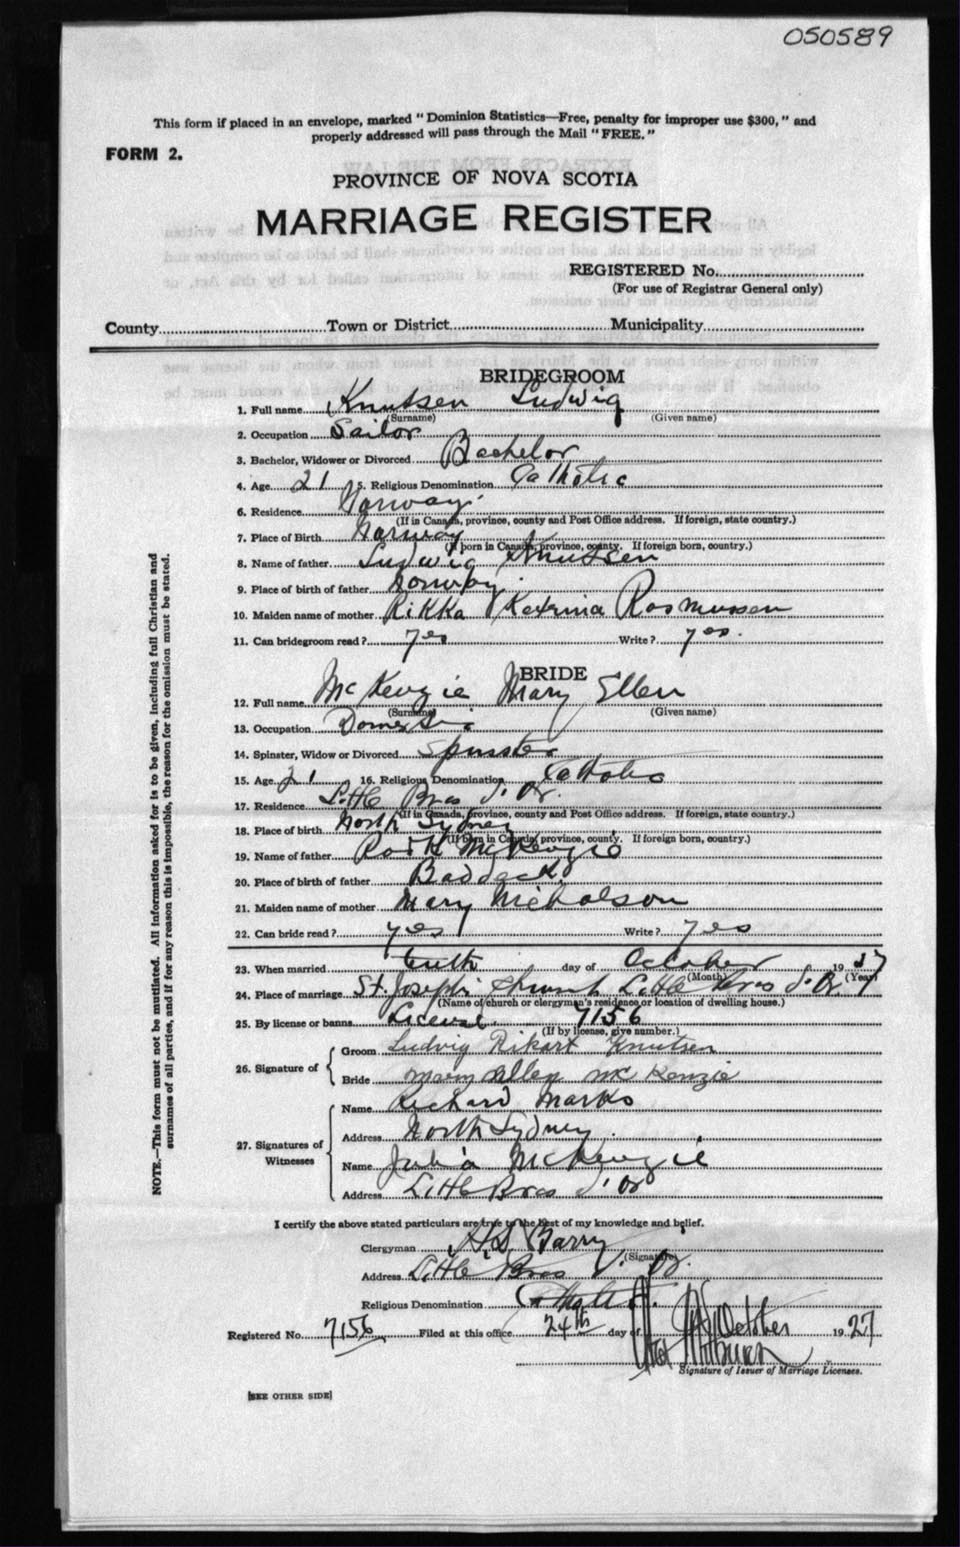 050589
This form if placed in an envelope, marked "Dominion Statistics—Free, penalty for improper use $300," and
properly addressed will pass through the Mail "FREE."
FORM 2.
PROVINCE OF NOVA SCOTIA
MARRIAGE REGISTER
REGISTERED No.
(For use of Registrar General only)
County Town or District Municipality
BRIDEGROOM
1. Full name Knutsen Ludwig
(Surname) (Given name)
2. Occupation Sailor
3. Bachelor, Widower or Divorced Bachelor
4. Age 21 5. Religious Denomination Catholic
6. Residence Norway
(If in Canada, province, county and Post Office address. If foreign, state country.)
7. Place of Birth Norway
(If born in Canada, province, county. If foreign born, country.)
8. Name of father Ludwig Knutsen
9. Place of birth of father Norway
10. Maiden name of mother Rikka Katrina Rasmussen
11. Can bridegroom read? yes Write? yes.
BRIDE
12. Full name McKenzie Mary Ellen
(Surname) (Given name)
13. Occupation Domestic
14. Spinster, Widow or Divorced Spinster
15. Age 21 16. Religious Denomination Catholic
17. Residence Little Bras d'Or.
(If in Canada, province, county and Post Office address. If foreign, state country.)
18. Place of birth North Sydney
(If born in Canada, province, county. If foreign born, country.)
19. Name of father McKenzie
20. Place of birth of father Baddeck
21. Maiden name of mother Mary Nicholson
22. Can bride read? yes Write? yes
23. When married day of October 19 27
(Month) (Year)
24. Place of marriage St. Joseph's Church Little Bras d'Or
(Name of church or clergyman's residence or location of dwelling house.)
25. By license or banns License. 7156
(If by license, give number.)
26. Signature of Groom Ludvig Rikart Knutsen
Bride Mary Ellen McKenzie
27. Signatures of Witnesses Name Richard Marks
Address North Sydney.
Name Julia McKenzie
Address Little Bras d'Or
I certify the above stated particulars are true to the best of my knowledge and belief.
Clergyman Barry
(Signature)
Address Little Bras d'Or.
Religious Denomination Catholic.
Registered No. 7156 Filed at this office 24th day of October 1927
Signature of Issuer of Marriage Licenses.
[SEE OTHER SIDE]
NOTE.—This form must not be mutilated. All information asked for is to be given, including full Christian and
surnames of all parties, and if for any reason this is impossible, the reason for the omission must be stated.